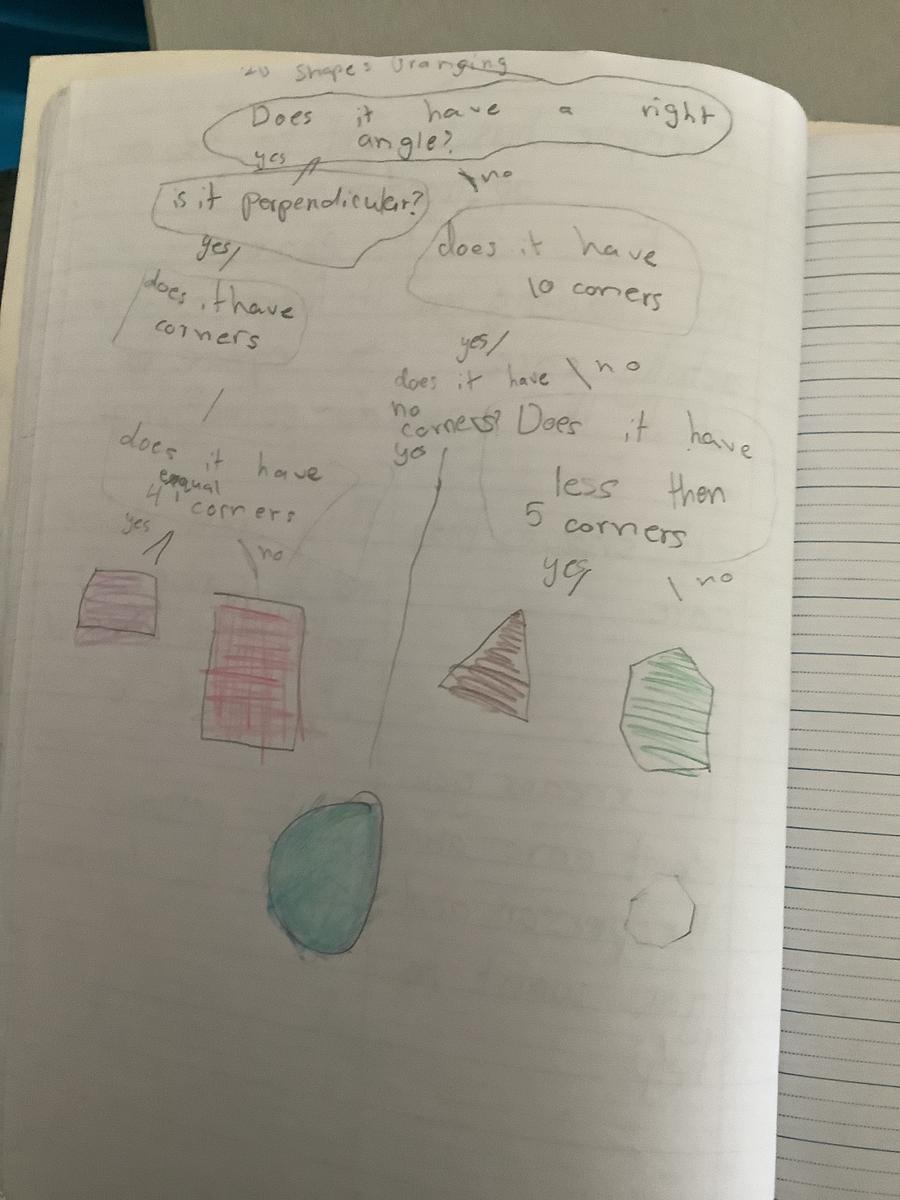 2D Shapes
Does it have a right
angle?
yes
no
is it perpendicular?
yes
does it have
10 corners
does it have
corners
yes
no
does it have
no
corners?
yes
Does it have
less then
5 corners
yes
no
does it have
4 eqqual
corners
yes
no